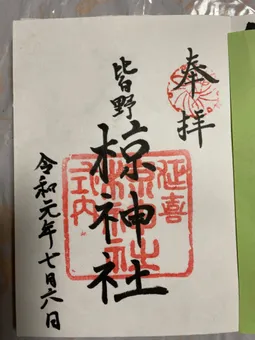 奉拝
皆野
椋神社
延喜
式内
椋神社
令和元年七月六日